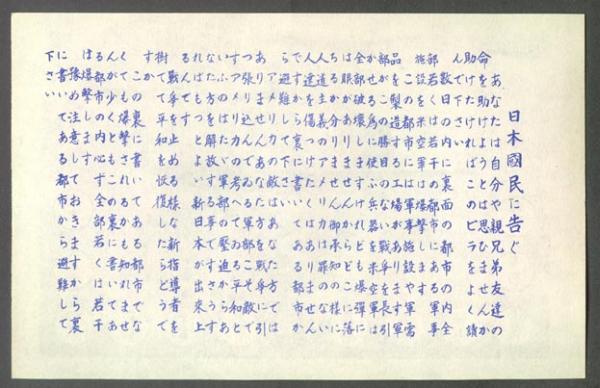 日本國民に告ぐ
あなたは自分や親兄弟友達の
命を助けようとは思ひませんか
助けたければこのビラをよく讀
んで下さい
數日の内に裏面の都市の内全部
若くは若干の都市にある軍事
施設を米空軍は爆撃します
この都市には軍事施設や軍需
品を製造する工場があります軍
部がこの勝目のない戰爭を長引
かせる為に使ふ兵器を米空軍は
全部破壞しますけれども爆彈に
は眼がありませんからどこに落
ちるか分りません御承知の様に
人道主義のアメリカは罪のない
人達を傷つけたくはありません
ですから裏に書いてある都市か
ら避難して下さい
アメリカの敵はあなた方では
ありませんあなた方を戰爭に引
つ張り込んでゐる軍部こそ敵で
すアメリカの考へてゐる平和と
いふのはたゞ軍部の壓迫からあ
なた方を解放する事ですさうす
ればもつとよい新日本が出來上
るんです
戰爭を止める様な新指導者を
樹てて平和を恢復したらどうで
すか
この裏に書いてある都市でな
くても爆撃されるかも知れませ
んが少くともこの裏に書いてあ
る都市の内必ず全部若しくは若干
は爆撃します
豫め注意しておきますから裏
に書いてある都市から避難して
下さい